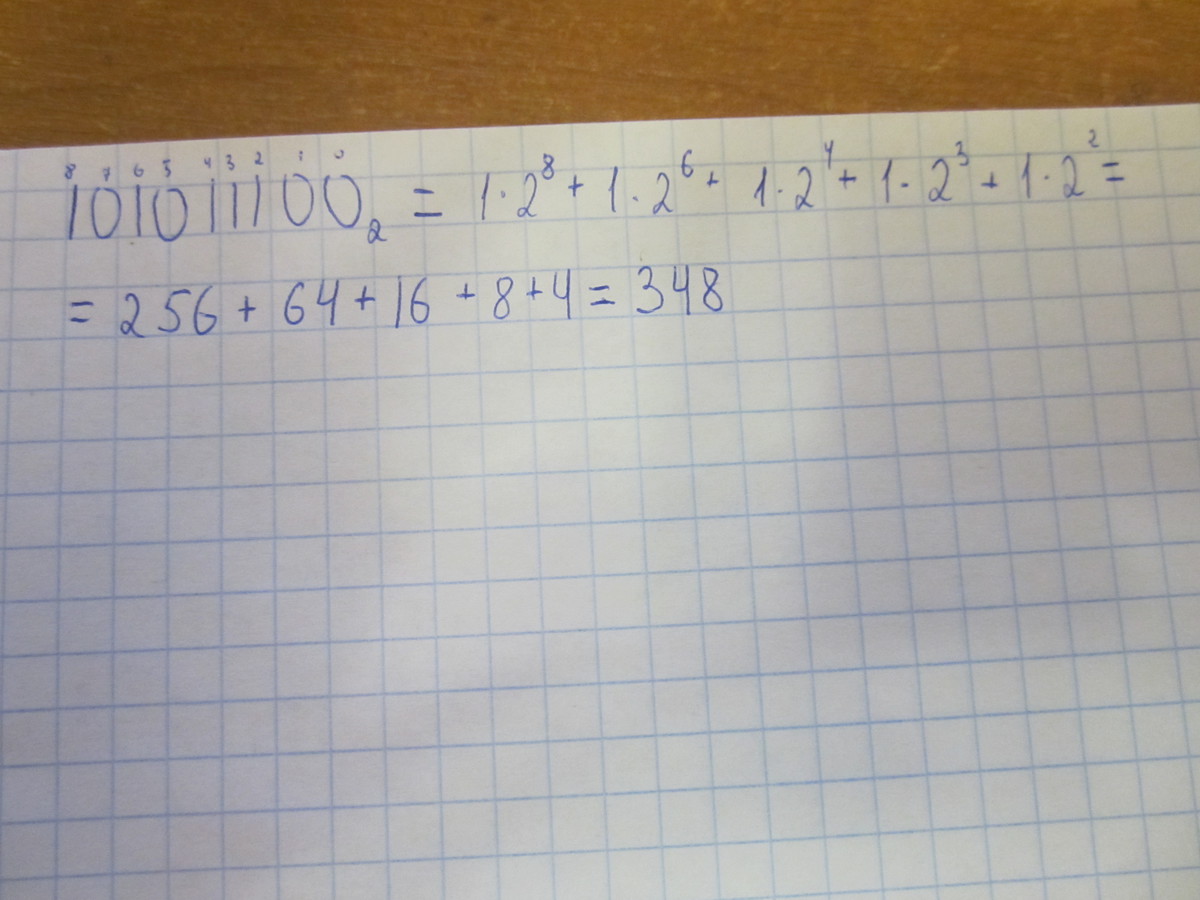 8 7 6 5 4 3 2 1 0
101011100₂ = 1·2⁸ + 1·2⁶ + 1·2⁴ + 1·2³ + 1·2² =
= 256 + 64 + 16 + 8 + 4 = 348